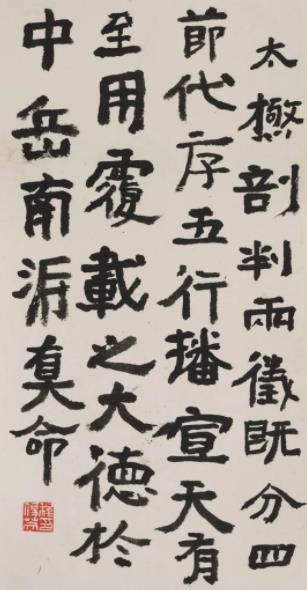 太極剖判兩徵既分四
節代序五行播宣天有
至用覆載之大德於
中岳南派真命